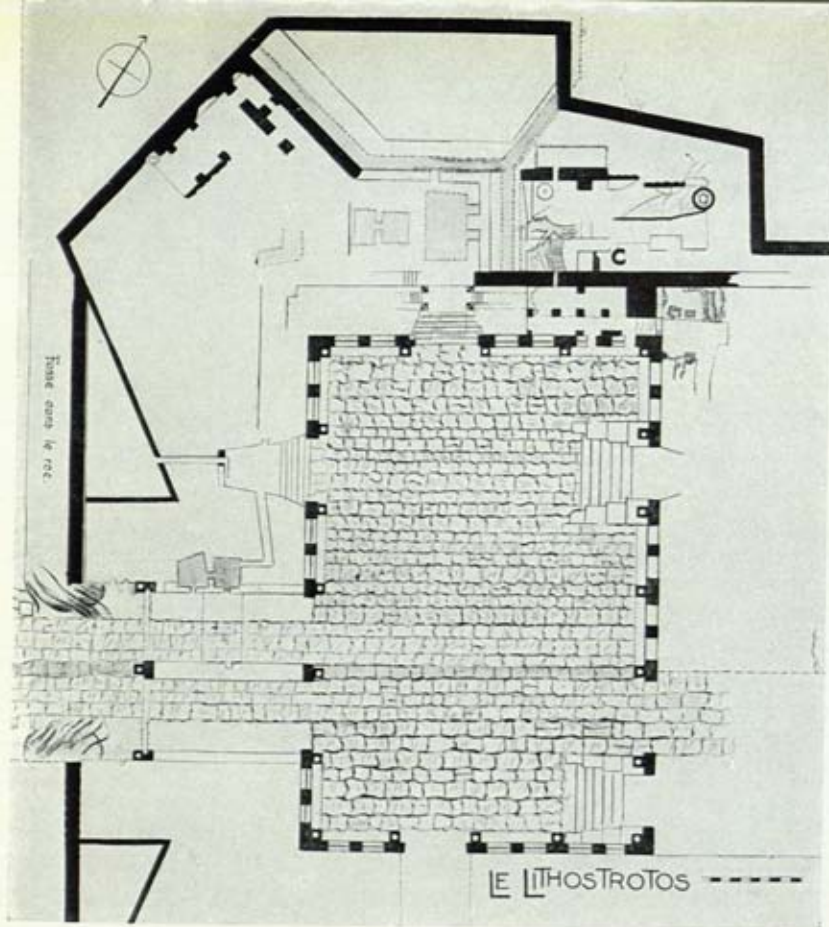 C
Fossé dans le roc.
LE LITHOSTROTOS